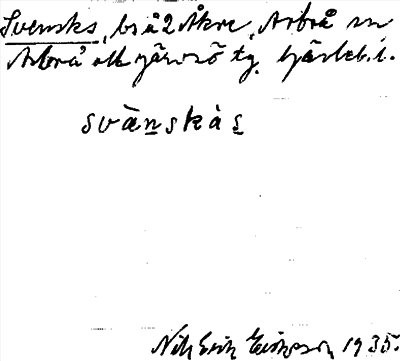 Svensks, bs å 2 Åkre, Arbrå sn
Arbrå och Järvsö tg. Gävleb. l.
svànskàs
Nils Erik Eriksson 1935.